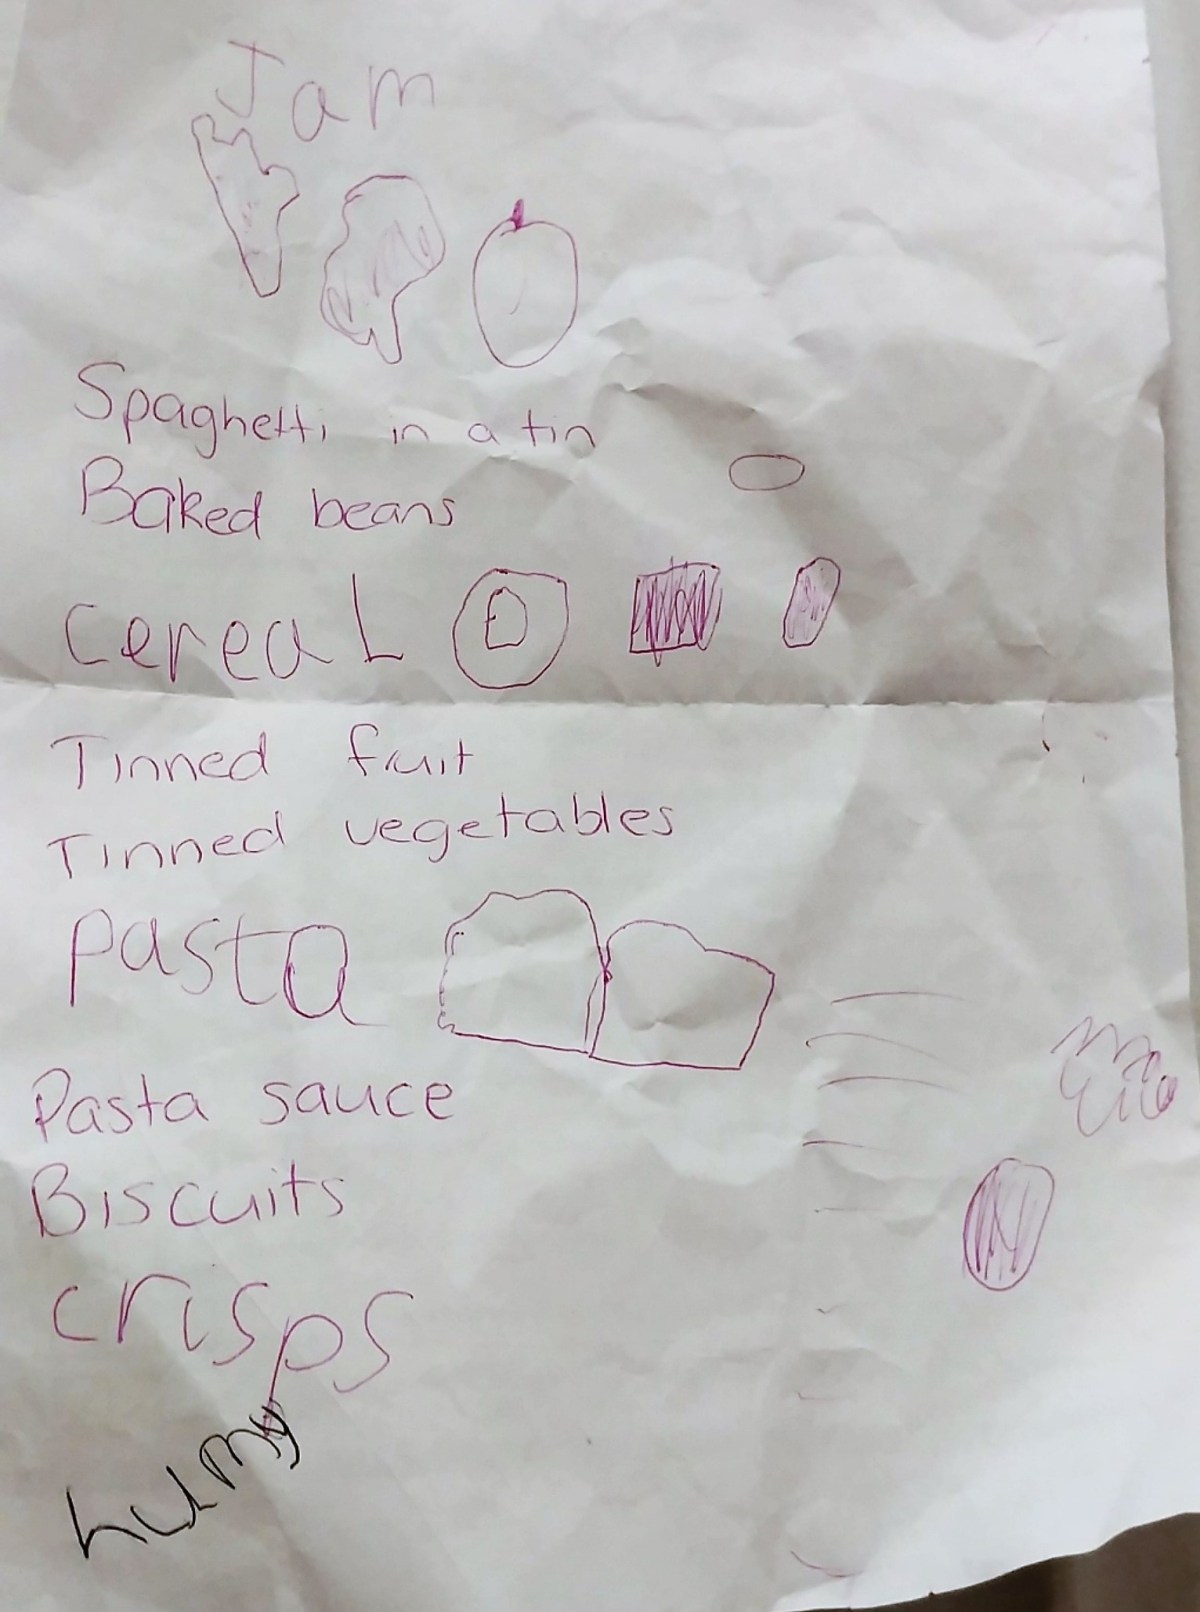 Jam
Spaghetti in a tin
Baked beans
cereaL
Tinned fruit
Tinned vegetables
Pasta
Pasta sauce
Biscuits
crisps